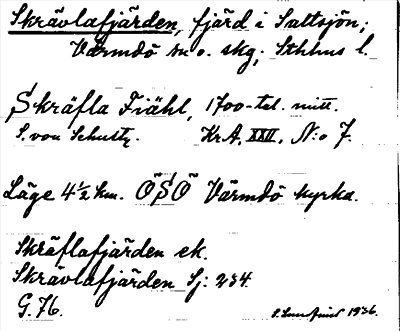 Skrävlafjärden, fjärd i Saltsjön;
Värmdö sn o. skg; Sthlms l.
Skräfla Fiähl, 1700-tal. mitt.
S. von Schultz. Kr.A. XXII. N:o 7.
Läge 4½ km. ÖSÖ Värmdö kyrka.
Skräflafjärden ek.
Skrävlafjärden Sj: 234.
G. 76. 1936.